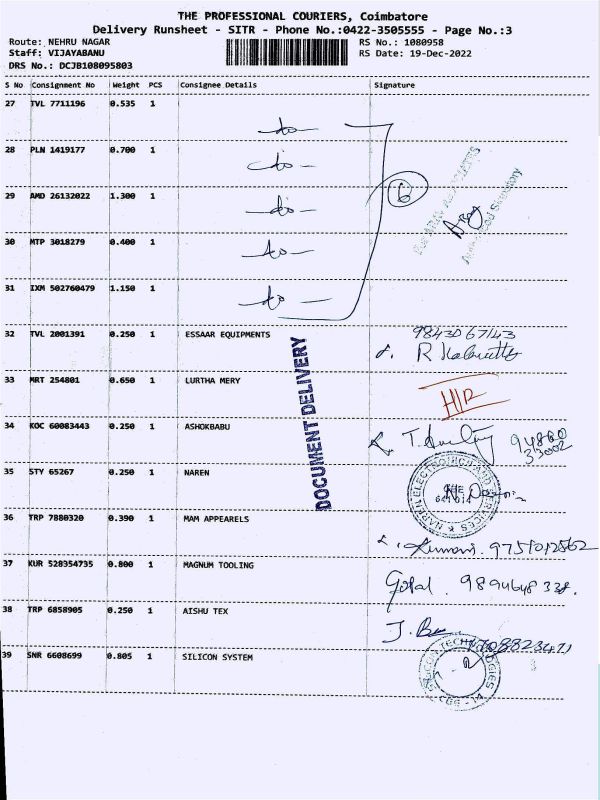 THE PROFESSIONAL COURIERS, Coimbatore
Delivery Runsheet - SITR - Phone No.:0422-3505555 - Page No.:3
Route: NEHRU NAGAR RS No.: 1080958
Staff: VIJAYABANU RS Date: 19-Dec-2022
DRS No.: DCJB108095803
S No Consignment No Weight PCS Consignee Details Signature
27 TVL 7711196 0.535 1
do
28 PLN 1419177 0.700 1
do
29 AMD 26132022 1.300 1
do
6
30 MTP 3018279 0.400 1
do
31 IXM 502760479 1.150 1
do
32 TVL 2001391 0.250 1 ESSAAR EQUIPMENTS 9843067143
DOCUMENT DELIVERY
33 MRT 254801 0.650 1 LURTHA MERY
34 KOC 60083443 0.250 1 ASHOKBABU
94860
33002
35 STY 65267 0.250 1 NAREN
36 TRP 7880320 0.390 1 MAM APPEARELS
Kumari. 9751012562
37 KUR 528354735 0.800 1 MAGNUM TOOLING
Gopal. 9894648338.
38 TRP 6858905 0.250 1 AISHU TEX
39 SNR 6608699 0.805 1 SILICON SYSTEM